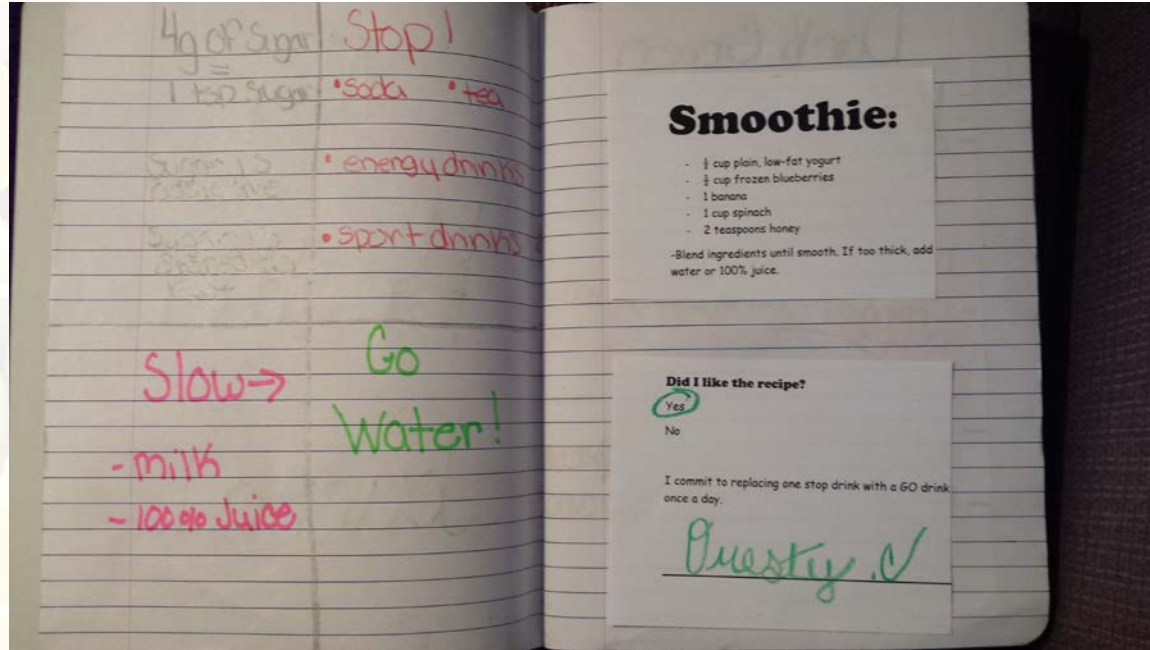 4g of Sugar
=
1 tsp Sugar
Sugar is
Stop!
•soda •tea
•energydrinks
•sportdrinks
Slow→
-milk
-100% Juice
Go
Water!
Smoothie:
- cup plain, low-fat yogurt
- cup frozen blueberries
- 1 banana
- 1 cup spinach
- 2 teaspoons honey
-Blend ingredients until smooth. If too thick, add
water or 100% juice.
Did I like the recipe?
Yes
No
I commit to replacing one stop drink with a GO drink
once a day.